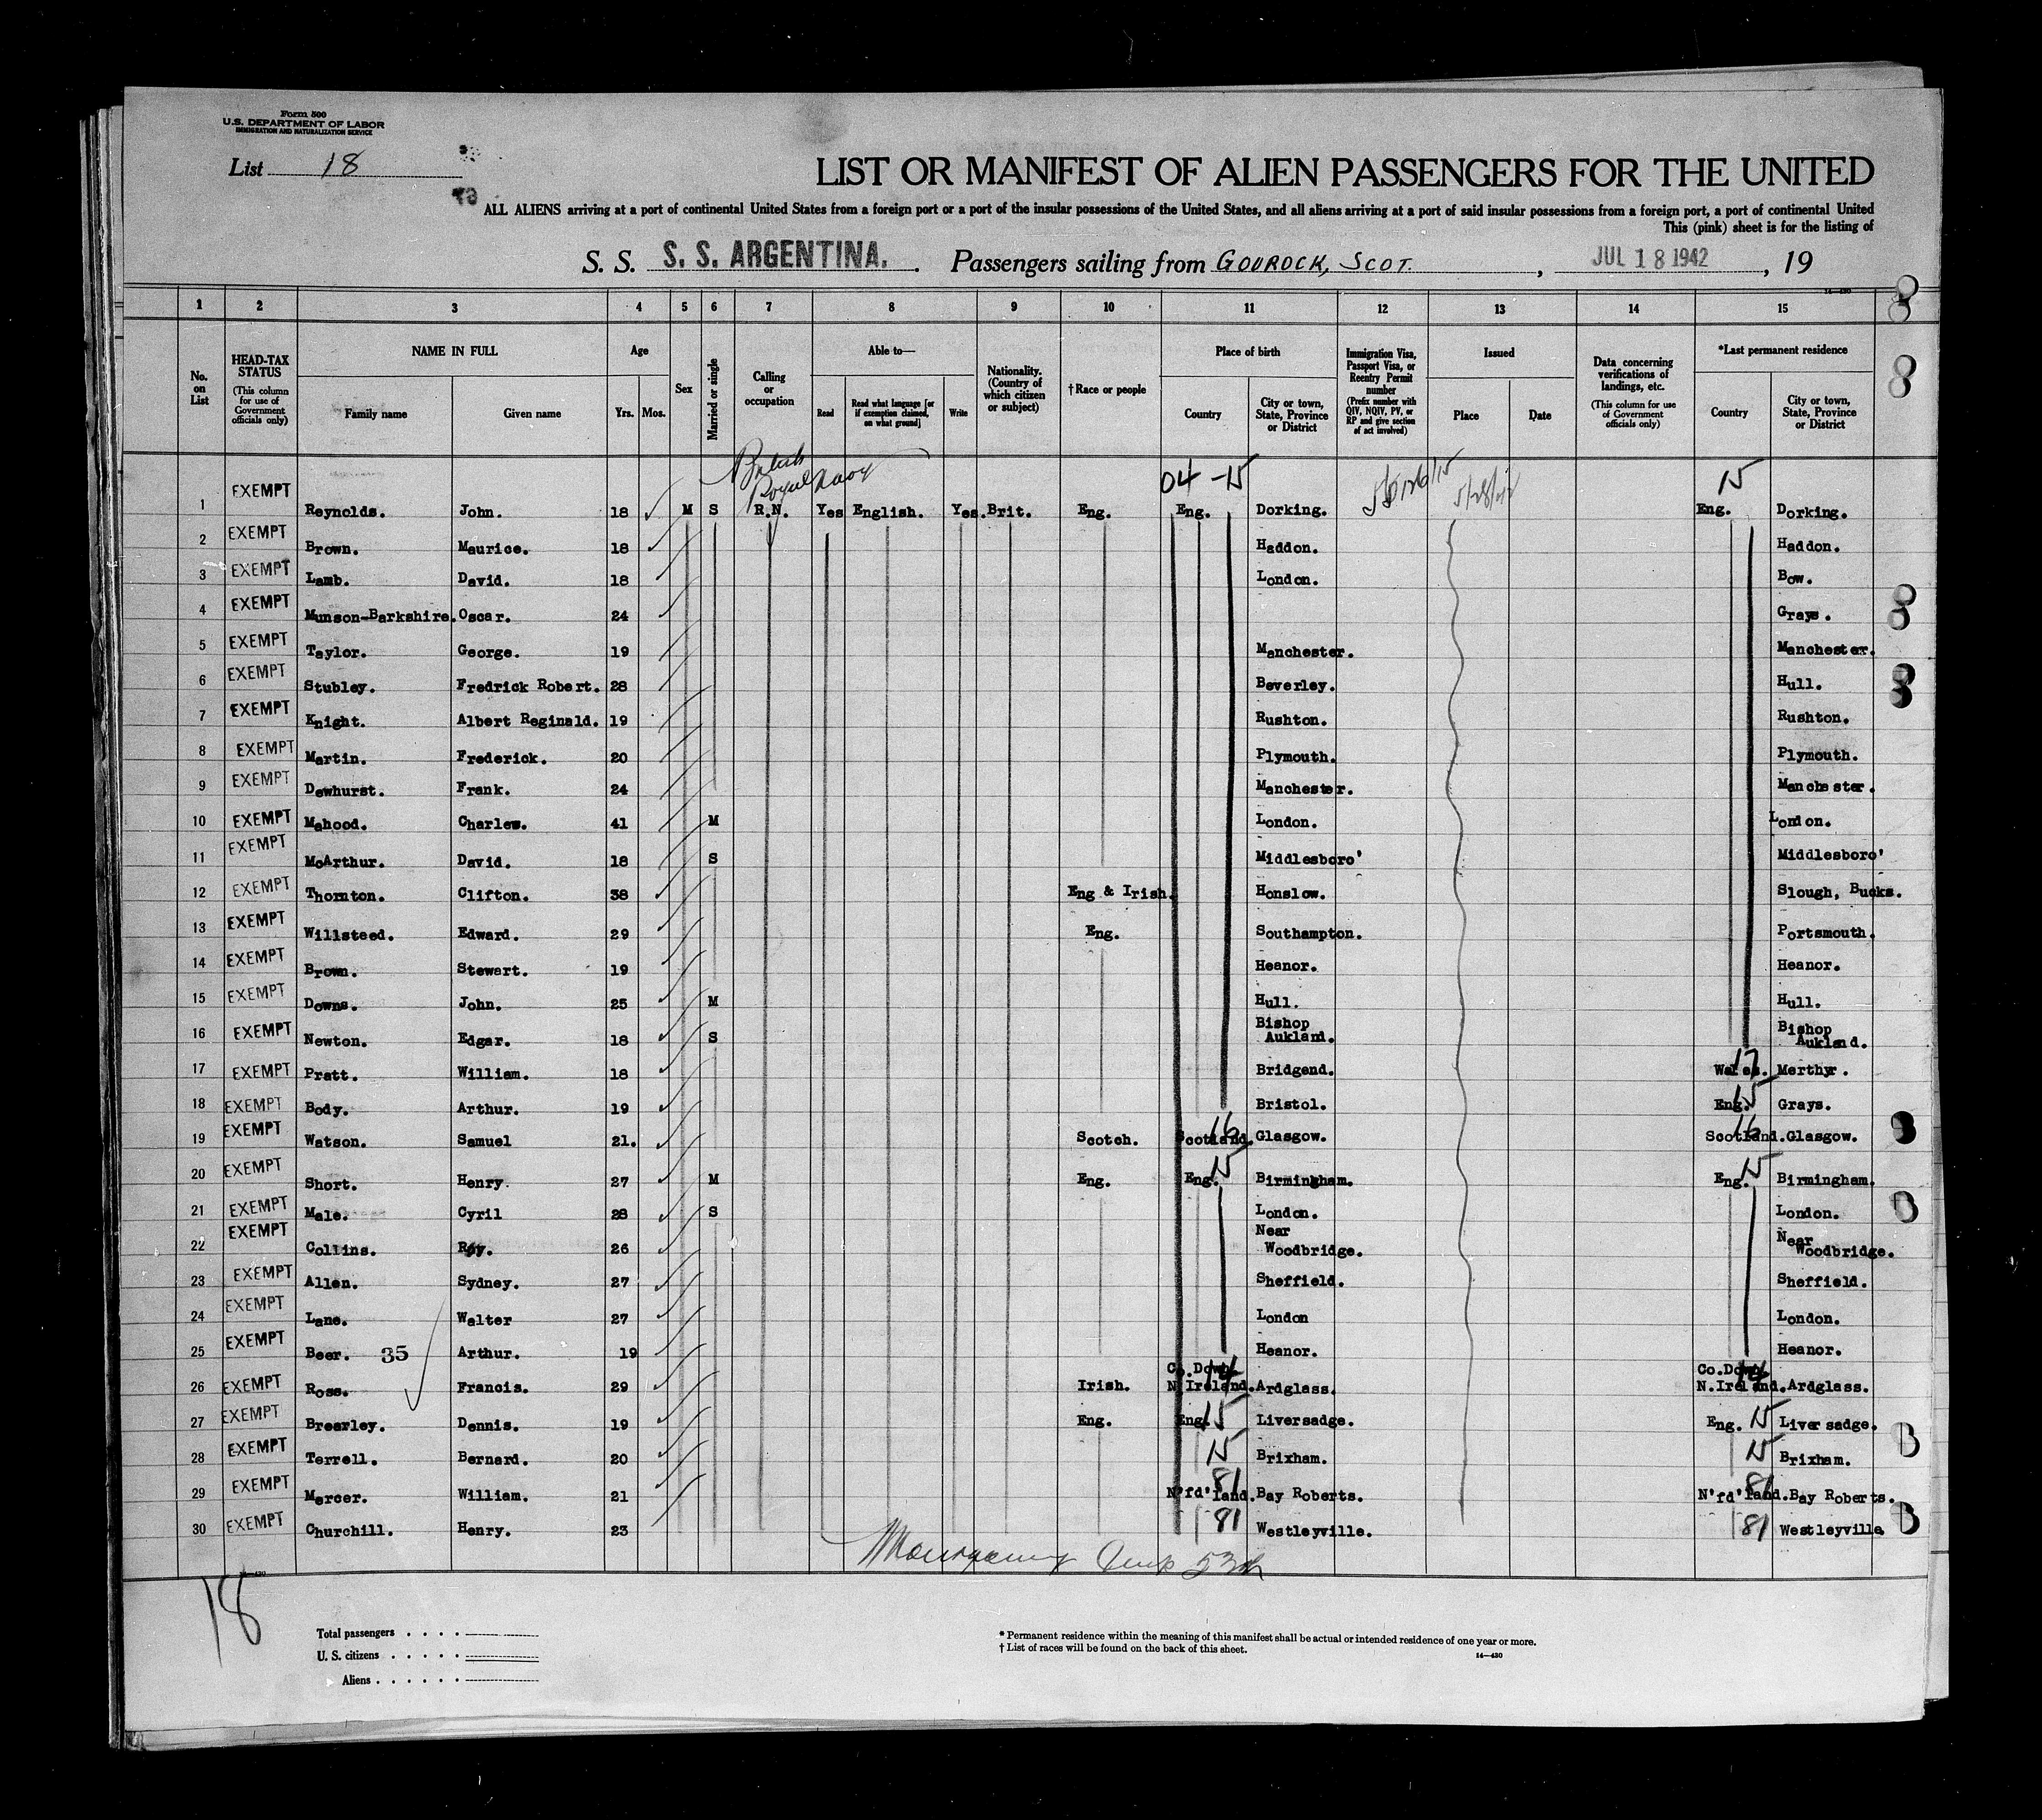 Form 500
U.S. DEPARTMENT OF LABOR
IMMIGRATION AND NATURALIZATION SERVICE
List 18
LIST OR MANIFEST OF ALIEN PASSENGERS FOR THE UNITED
ALL ALIENS arriving at a port of continental United States from a foreign port or a port of the insular possessions of the United States, and all aliens arriving at a port of said insular possessions from a foreign port, a port of continental United
This (pink) sheet is for the listing of
S. S. S. S. ARGENTINA. Passengers sailing from GOUROCK, SCOT. , JUL 18 1942 , 19
14—430
1 2 3 4 5 6 7 8 9 10 11 12 13 14 15
No. on List
HEAD-TAX STATUS (This column for use of Government officials only)
NAME IN FULL
Family name Given name
Age
Yrs. Mos.
Sex
Married or single
Calling or occupation
Able to—
Read Read what language [or if exemption claimed, on what ground] Write
Nationality. (Country of which citizen or subject)
†Race or people
Place of birth
Country City or town, State, Province or District
Immigration Visa, Passport Visa, or Reentry Permit number (Prefix number with QIV, NQIV, PV, or RP and give section of act involved)
Issued
Place Date
Data concerning verifications of landings, etc. (This column for use of Government officials only)
*Last permanent residence
Country City or town, State, Province or District
British
Royal Navy
04 -15 15
1 EXEMPT Reynolds. John. 18 M S R.N. Yes English. Yes. Brit. Eng. Eng. Dorking. Eng. Dorking.
2 EXEMPT Brown. Maurice. 18 Haddon. Haddon.
3 EXEMPT Lamb. David. 18 London. Bow.
4 EXEMPT Munson-Barkshire. Oscar. 24 Grays.
5 EXEMPT Taylor. George. 19 Manchester. Manchester.
6 EXEMPT Stubley. Fredrick Robert. 28 Beverley. Hull.
7 EXEMPT Knight. Albert Reginald. 19 Rushton. Rushton.
8 EXEMPT Martin. Frederick. 20 Plymouth. Plymouth.
9 EXEMPT Dewhurst. Frank. 24 Manchester. Manchester.
10 EXEMPT Mahood. Charles. 41 M London. London.
11 EXEMPT McArthur. David. 18 S Middlesboro' Middlesboro'
12 EXEMPT Thornton. Clifton. 38 Eng & Irish. Honslow. Slough, Bucks.
13 EXEMPT Willsteed. Edward. 29 Eng. Southampton. Portsmouth.
14 EXEMPT Brown. Stewart. 19 Heanor. Heanor.
15 EXEMPT Downs. John. 25 M Hull. Hull.
16 EXEMPT Newton. Edgar. 18 S Bishop Aukland. Bishop Aukland.
17 EXEMPT Pratt. William. 18 Bridgend. Wales. 17 Merthyr.
18 EXEMPT Body. Arthur. 19 Bristol. Eng. 15 Grays.
19 EXEMPT Watson. Samuel 21. Scotch. Scotland. 16 Glasgow. Scotland. 16 Glasgow.
20 EXEMPT Short. Henry. 27 M Eng. Eng. 15 Birmingham. Eng. 15 Birmingham.
21 EXEMPT Male. Cyril 28 S London. London.
22 EXEMPT Collins. Roy. 26 Near Woodbridge. Near Woodbridge.
23 EXEMPT Allen. Sydney. 27 Sheffield. Sheffield.
24 EXEMPT Lane. Walter 27 London London.
25 EXEMPT Beer. 35 Arthur. 19 Heanor. Heanor.
26 EXEMPT Ross. Francis. 29 Irish. Co. Down. N.Ireland. 14 Ardglass. Co. Down. N.Ireland. 14 Ardglass.
27 EXEMPT Brearley. Dennis. 19 Eng. Eng. 15 Liversadge. Eng. 15 Liversadge.
28 EXEMPT Terrell. Bernard. 20 15 Brixham. 15 Brixham.
29 EXEMPT Mercer. William. 21 N'fd'land. 81 Bay Roberts. N'fd'land. 81 Bay Roberts.
30 EXEMPT Churchill. Henry. 23 81 Westleyville. 81 Westleyville
14—430
18
Total passengers
U. S. citizens
Aliens
* Permanent residence within the meaning of this manifest shall be actual or intended residence of one year or more.
† List of races will be found on the back of this sheet.
14—430